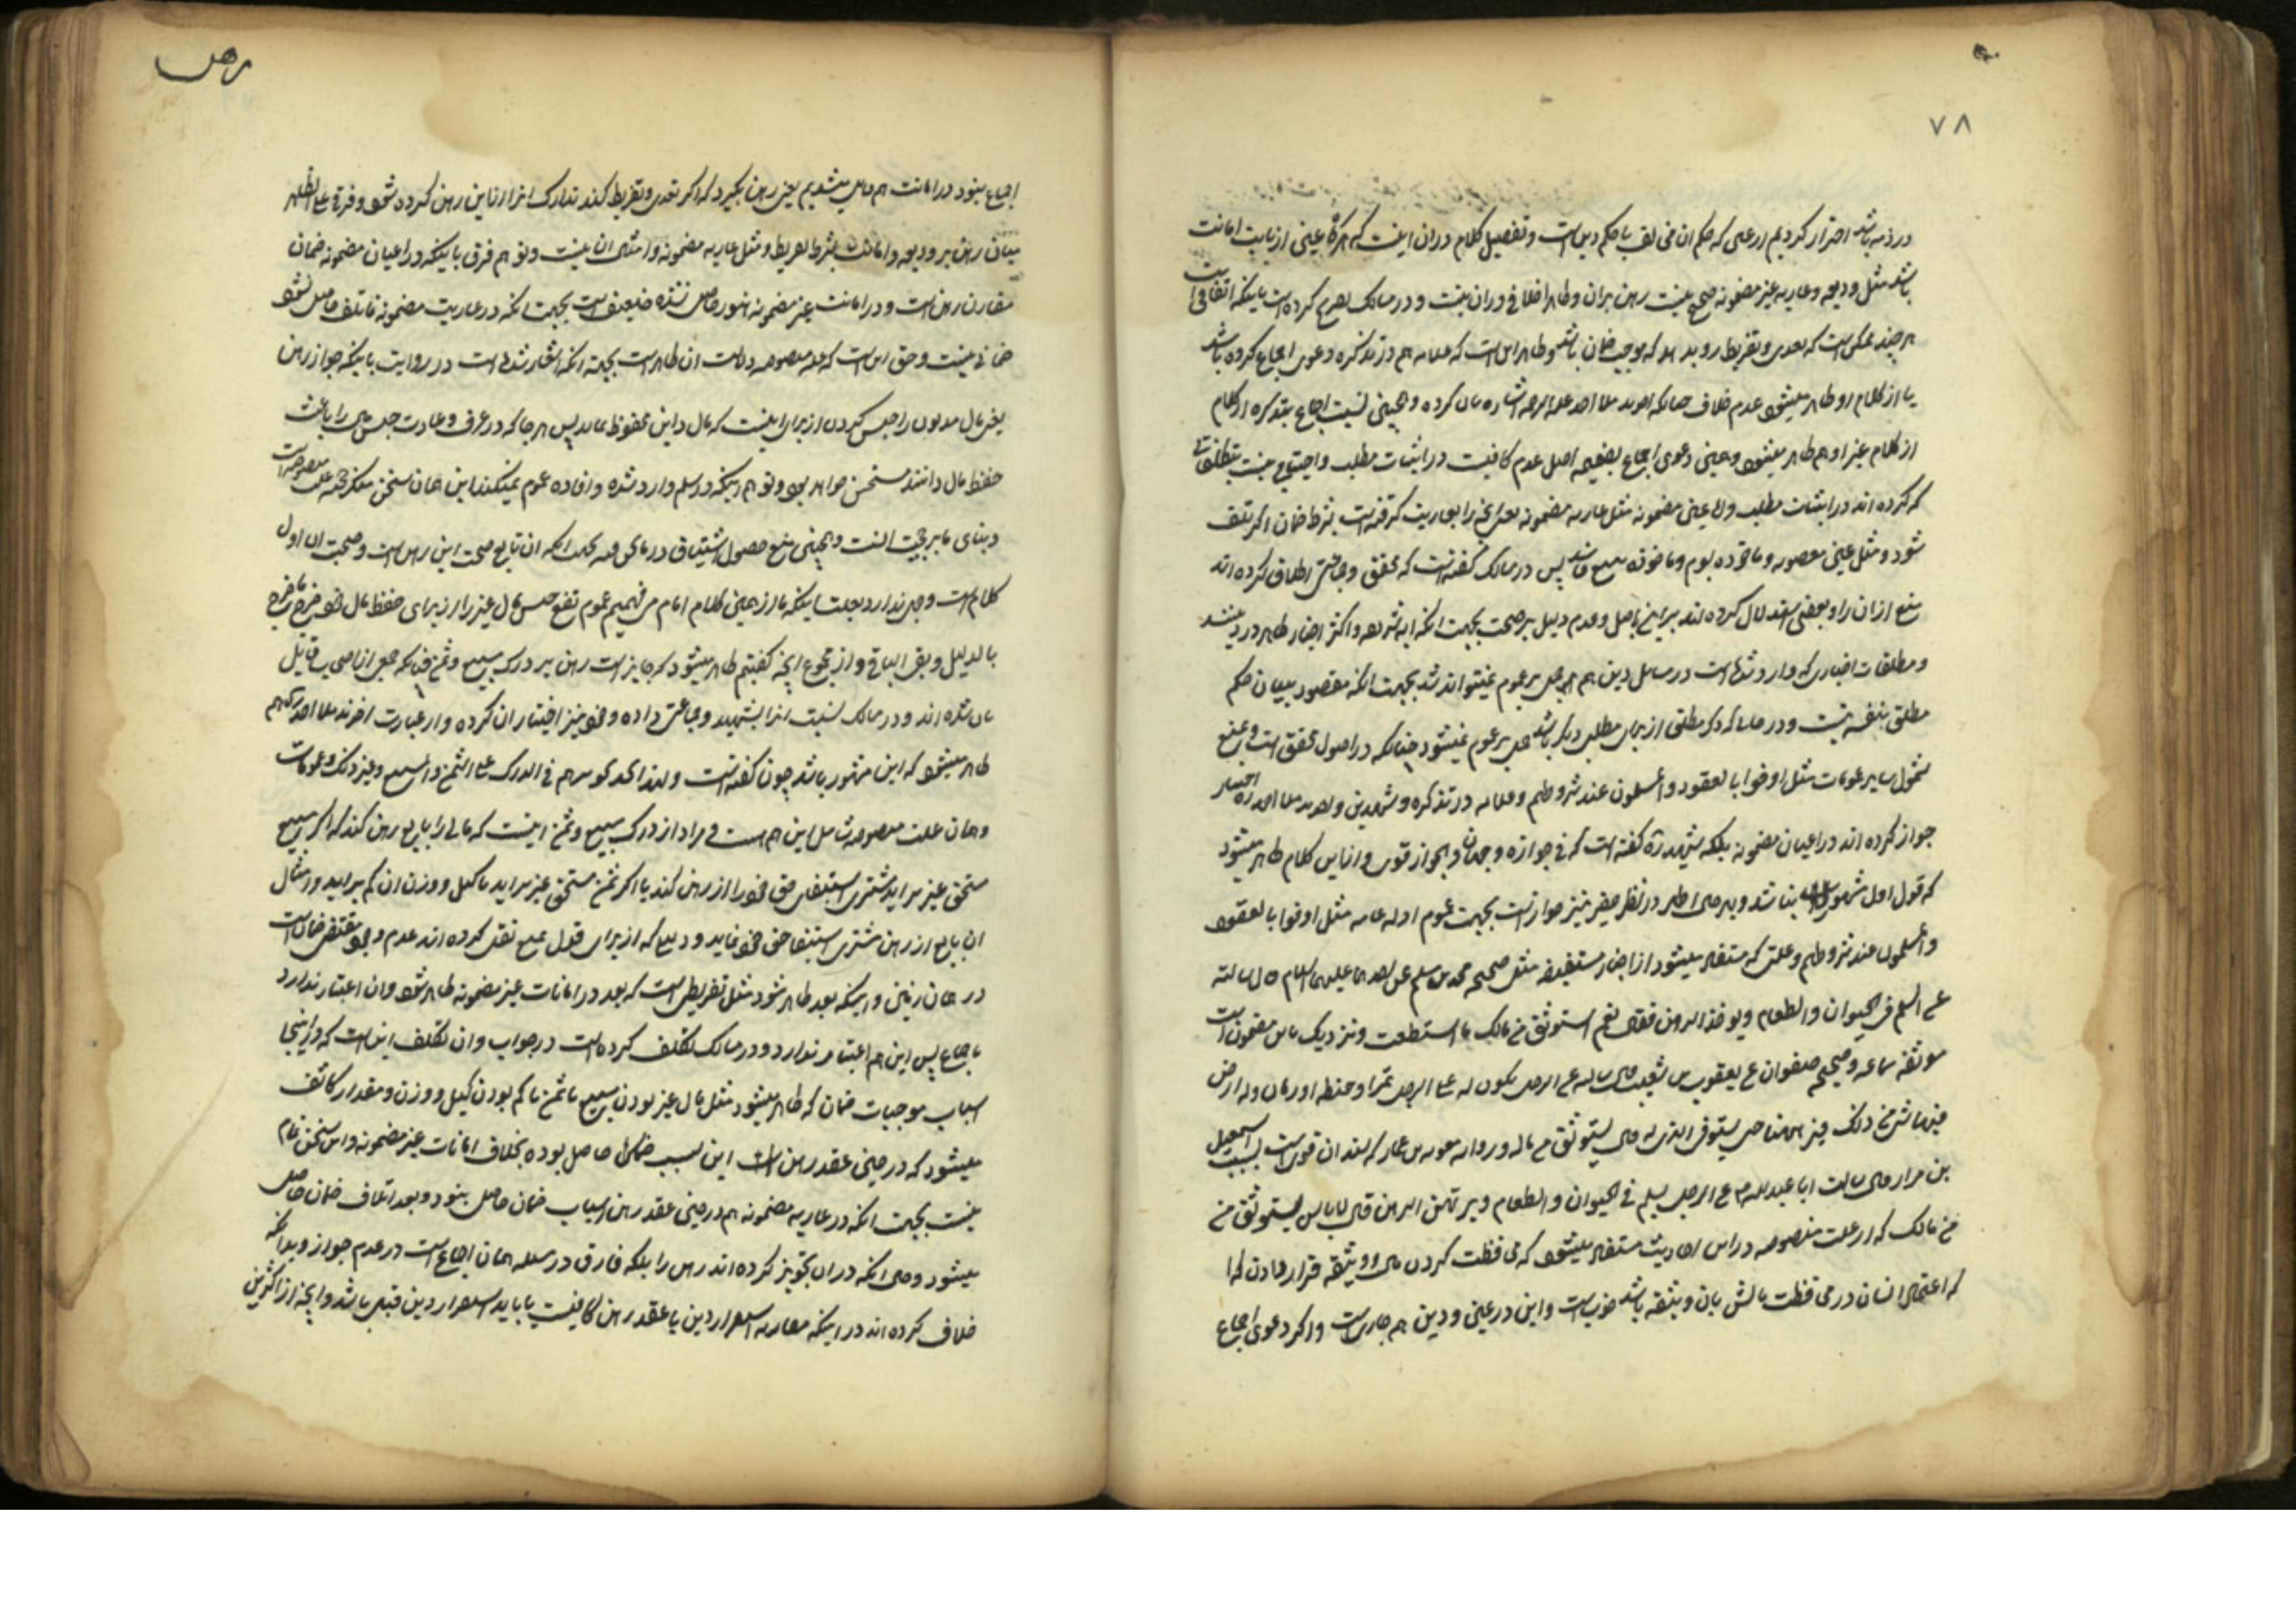 ۷۸
در ذمه باشد احتراز کردیم از عینی که حکم ان مخالف با حکم دین است و تفصیل کلام دران اینست که هرگاه عینی از بابت امانت
باشد مثل ودیعه و عاریه غیر مضمونه صحیح نیست رهن بران و ظاهرا خلافی دران نیست و در مسالک تصریح کرده است باینکه اتفاقی است
هر چند ممکن است که تعدی و تفریط رو بدهد که موجب ضمان باشد و ظاهر این است که علامه هم در تذکره دعوی اجماع کرده باشد
یا از کلام او ظاهر میشود عدم خلاف چنانکه اخوند ملا احمد علیه الرحمه اشاره بان کرده و همچنین نسبت اجماع بتذکره از کلام
از کلام غیر او هم ظاهر میشود و همین دعوی اجماع بضمیمه اصل عدم کافیست در اثبات مطلب و احتیاج نیست بتکلفاتی
که کرده اند در اثبات مطلب و اما عینی مضمونه مثل عاریه مضمونه یعنی انچه را بعاریت گرفته است بشرط ضمان اگر تلف
شود و مثل عین مغصوبه و ماخوذه بسوم و ماخوذه ببیع فاسد پس در مسالک گفته است که محقق و جماعتی اطلاق کرده اند
منع ازان را و بعضی استدلال کرده اند براین باصل و عدم دلیل بر صحت بجهت انکه ایه شریفه و اکثر اخبار ظاهر در دینند
و مطلقات اخباری که وارد شده است در مسائل دین هم حمل بر عموم نمیتواند شد بجهت انکه مقصود بیان حکم
مطلق بنفسه نیست و در جایی که ذکر مطلق از برای مطلب دیگر باشد حمل بر عموم نمیشود چنانکه در اصول محقق است و منع
شمول سایر عمومات مثل اوفوا بالعقود و المسلمون عند شروطهم و علامه در تذکره و شهیدین و اخوند ملا احمد ره اختیار
جواز کرده اند در اعیان مضمونه بلکه شهید ره گفته است که فی جوازه وجهان و الجواز قوی و از این کلام ظاهر میشود
که قول اول مشهور بنا شد و بهر حال اظهر در نظر حقیر نیز جواز است بجهت عموم ادله عامه مثل اوفوا بالعقود
و المسلمون عند شروطهم و علتی که مستفاد میشود از اخبار مستفیضه مثل صحیحه محمد بن مسلم عن احدهما علیهما السلام قال سالته
عن السلم فی الحیوان و الطعام و یؤخذ الرهن فقال نعم استوثق من مالک ما استطعت و نزدیک باین مضمون است
موثقه سماعه و صحیحه صفوان عن یعقوب بن شعیب قال سالته عن الرجل یکون له علی الرجل تمر او حنطه او رمان وله ارض
فیها شئ من ذلک فیرهنها حتی یستوفی الذی له قال یستوثق من ماله و روایه معویه بن عمار که سند ان قویست بسبب اسمعیل
بن مرار قال سالت ابا عبدالله ع عن الرجل یسلم فی الحیوان و الطعام و یرتهن الرهن قال لا باس یستوثق من
من مالک که از علت منصوصه در این احادیث مستفاد میشود که محافظت کردن مال و وثیقه قرار دادن انرا
که اعتماد انسان در محافظت مالش بان وثیقه باشد خوب است و این در عین و دین هم جاری است و اگر دعوی اجماع
رهن
اجماع نبود در امانت هم قایل میشدیم یعنی رهن بگیرد که اگر تعدی و تفریط کند تدارک انرا از این رهن کرده شود و فرقی علی الظاهر
میان رهن بر ودیعه و امانت بشرط تفریط و مثل عاریه مضمونه و امثال ان نیست و توهم فرق باینکه در اعیان مضمونه ضمان
مقارن رهن است و در امانت غیر مضمونه هنوز حاصل نشده ضعیف است بجهت انکه در عاریت مضمونه تا تلف حاصل نشود
ضمانی نیست و حق این است که علت منصوصه دلالت ان ظاهر است بجهت انکه اشعار شده است در روایت باینکه جواز رهن
یعنی مال مدیون را حبس کردن از برای اینست که مال دائن محفوظ بماند پس هر جا که در عرف و عادت حبس مال را باعث
حفظ مال دانند مستحسن خواهد بود و توهم اینکه در سلم وارد شده و افاده عموم نمیکند این همان سخن منکر حجیت علت منصوصه است
و بنای ما بر حجیت انست و همچنین منع حصول استیثاق در ما نحن فیه بجهت انکه ان تابع صحت این رهن است و صحت ان اول
کلام است وجهی ندارد بعلت اینکه ما از همین کلام امام می فهمیم عموم نفع حبس مال غیر را از برای حفظ مال خود خرج ما خرج
بالدلیل و بقی الباقی و از مجموع انچه گفتیم ظاهر میشود که جایز است رهن بر درک مبیع و ثمن چنانکه جمعی از اصحاب قایل
بان شده اند و در مسالک نسبت انرا بشهید و جماعتی داده و خود نیز اختیار ان کرده و از عبارت اخوند ملا احمد ره هم
ظاهر میشود که این مشهور باشد چون گفته است ولذا تجدهم فی الدرک علی الثمن و المبیع و غیر ذلک و عمومات
و همان علت منصوصه شامل این هم هست و مراد از درک مبیع و ثمن اینست که مالی را بایع رهن کند که اگر مبیع
مستحق غیر براید مشتری استیفای حق خود را از رهن کند یا اگر ثمن مستحق غیر براید یا کیل و وزن ان کم براید و امثال
ان بایع از رهن مشتری استیفا حق خود نماید و دلیلی که از برای قول بمنع نقل کرده اند عدم وجود مقتضی ضمان است
در همان زمین و اینکه بعد ظاهر شود مثل تفریطی است که بعد در امانات غیر مضمونه ظاهر شود و ان اعتبار ندارد
باجماع پس این هم اعتبار ندارد و در مسالک تکلف کرده است در جواب و ان تکلف این است که در اینجا
اسباب موجبات ضمان که ظاهر میشود مثل مال غیر بودن مبیع یا ثمن یا کم بودن کیل و وزن و مقدار کاشف
میشود که در حین عقد رهن این سبب ضمان حاصل بوده بخلاف امانات غیر مضمونه و این سخن تمام
نیست بجهت انکه در عاریه مضمونه هم در حین عقد رهن اسباب ضمان حاصل نبود و بعد اتلاف ضمان حاصل
میشود و حال انکه دران تجویز کرده اند رهن را بلکه فارق در مسئله همان اجماع است در عدم جواز و بدانکه
خلاف کرده اند در اینکه مقارنه استقرار دین با عقد رهن کافیست یا باید استقرار دین قبل باشد و انچه از اکثرین